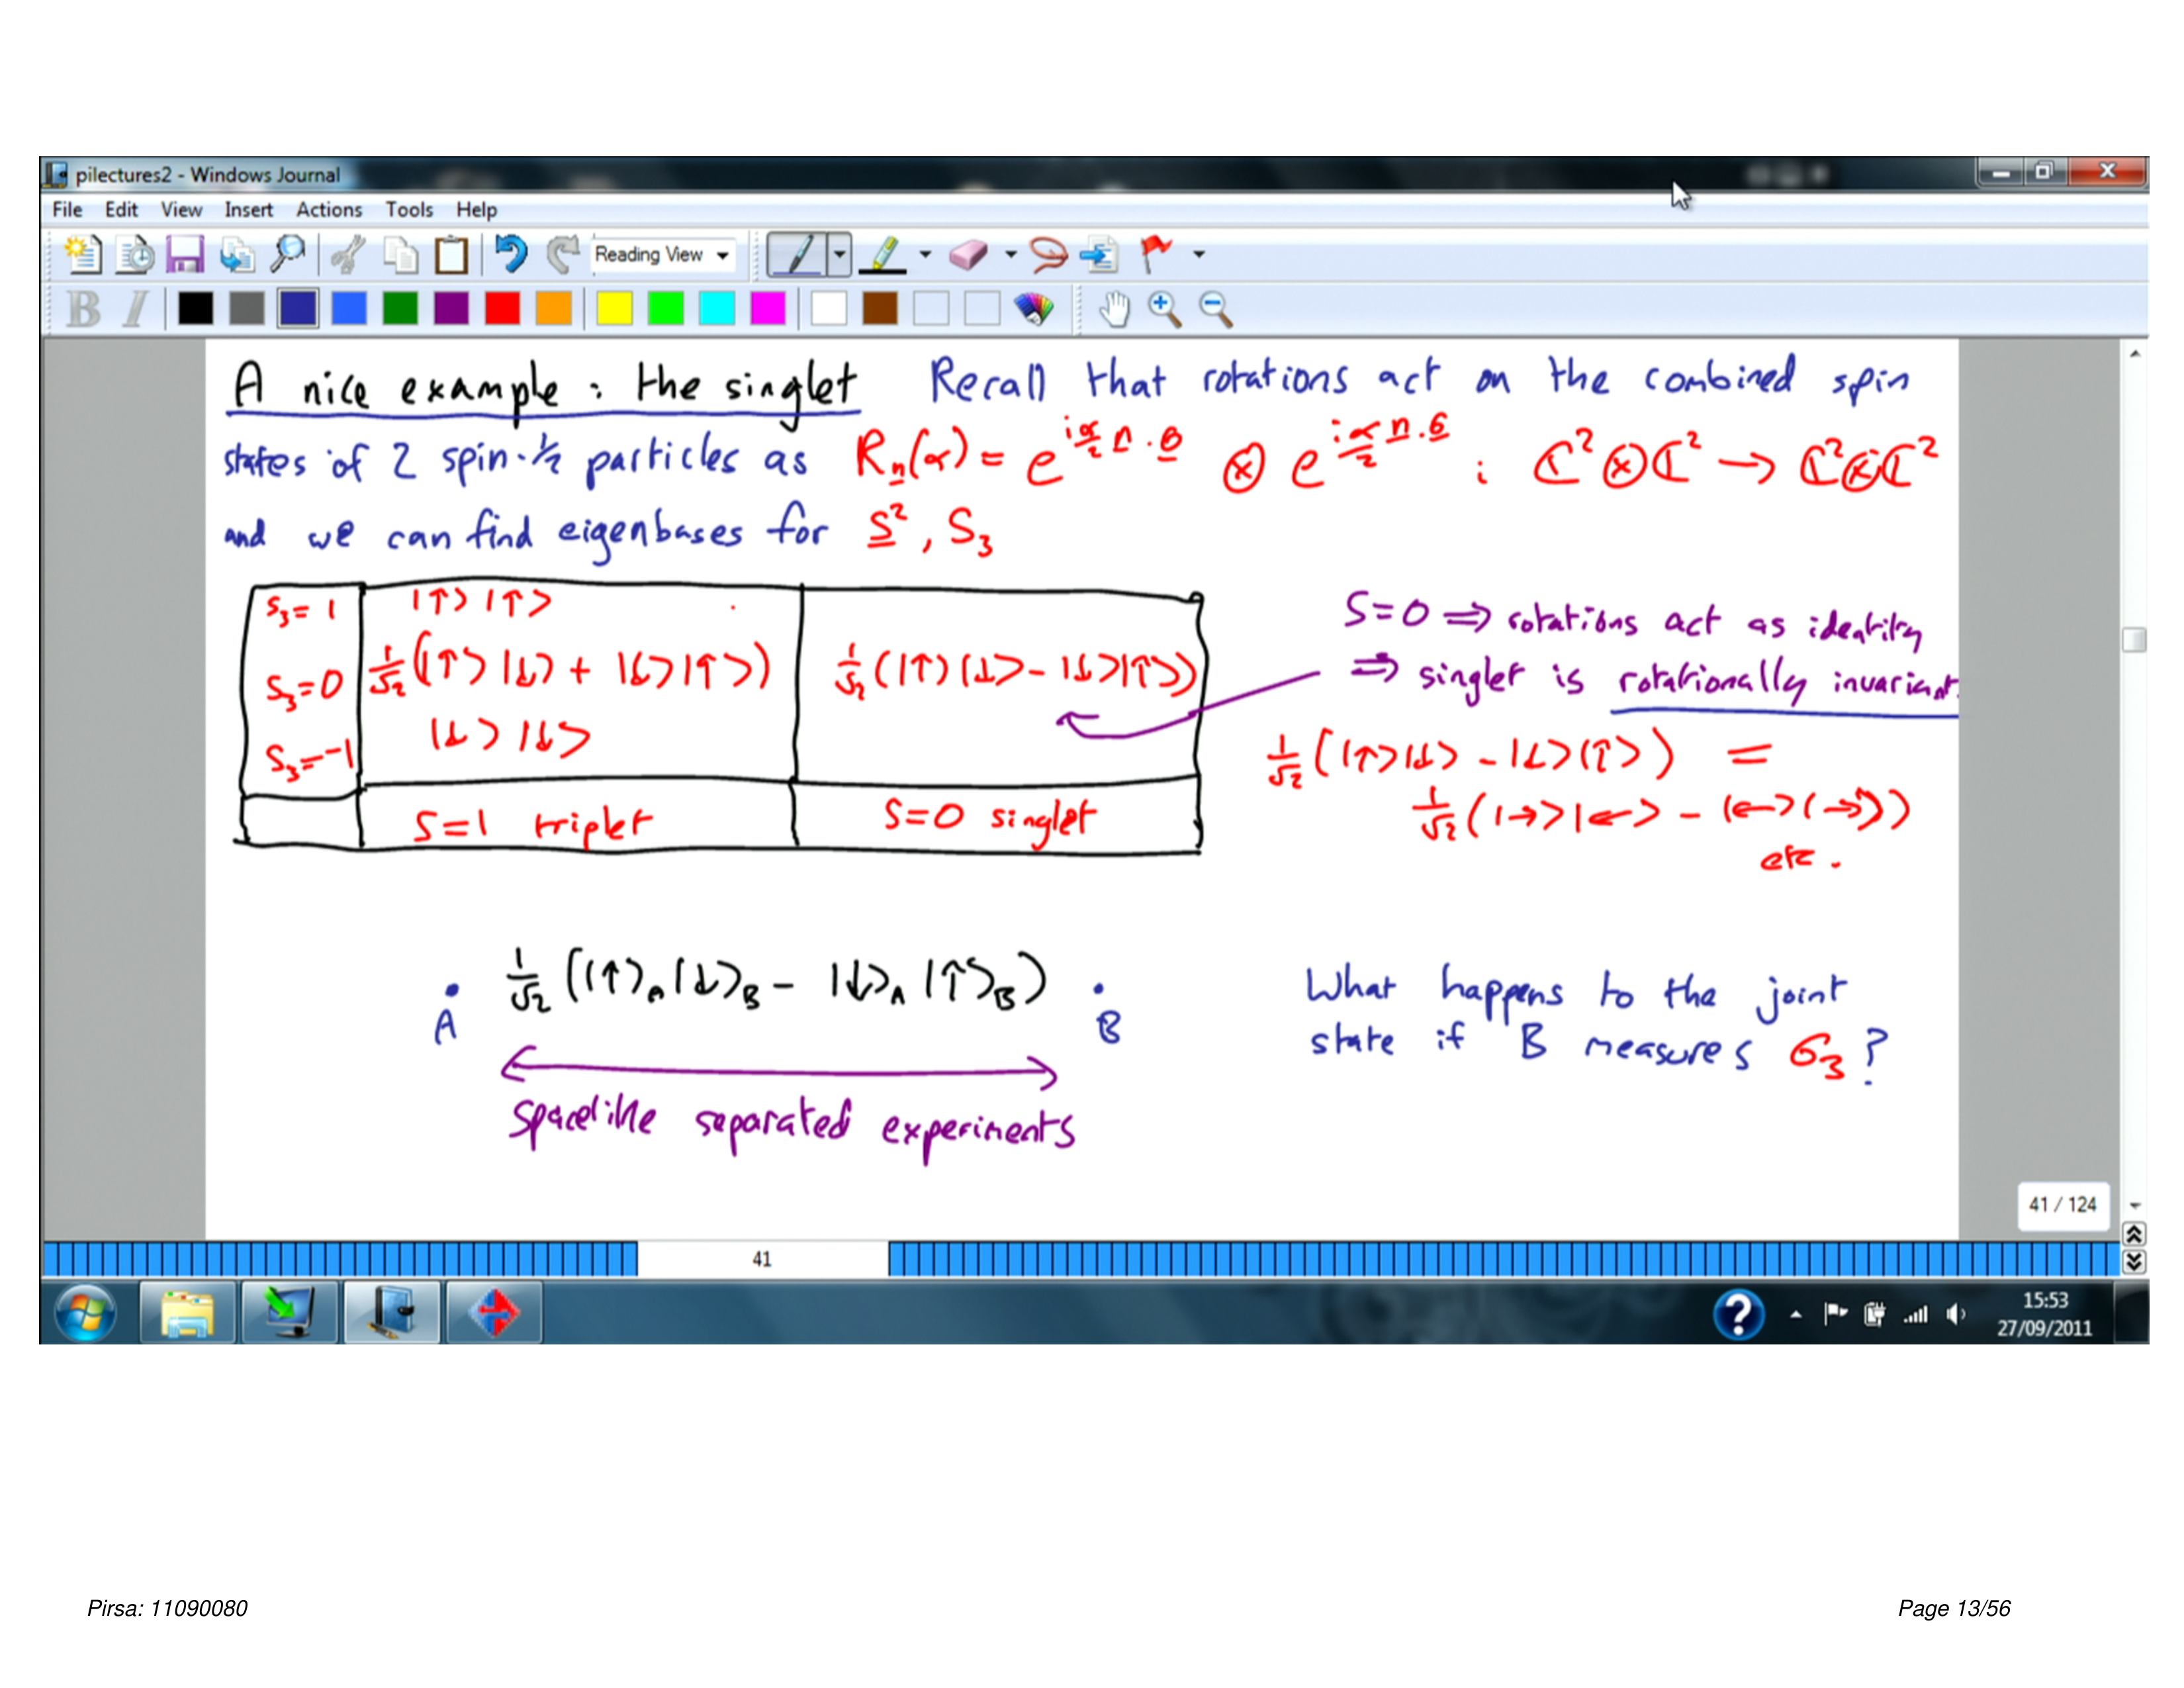 pilectures2 - Windows Journal
File Edit View Insert Actions Tools Help
Reading View
B I
A nice example : the singlet Recall that rotations act on the combined spin
states of 2 spin-½ particles as R_n(α) = e^{i α/2 n·σ} ⊗ e^{i α/2 n·σ} : ℂ² ⊗ ℂ² → ℂ² ⊗ ℂ²
and we can find eigenbases for S², S₃
S₃ = 1 |↑⟩|↑⟩
S₃ = 0 1/√2 (|↑⟩|↓⟩ + |↓⟩|↑⟩) 1/√2 (|↑⟩|↓⟩ - |↓⟩|↑⟩)
S₃ = -1 |↓⟩|↓⟩
S=1 triplet S=0 singlet
S=0 ⇒ rotations act as identity
⇒ singlet is rotationally invariant.
1/√2 (|↑⟩|↓⟩ - |↓⟩|↑⟩) =
1/√2 (|→⟩|←⟩ - |←⟩|→⟩)
etc.
A 1/√2 (|↑⟩_A |↓⟩_B - |↓⟩_A |↑⟩_B) B
Spacelike separated experiments
What happens to the joint
state if B measures σ₃?
41 / 124
41
15:53
27/09/2011
Pirsa: 11090080
Page 13/56